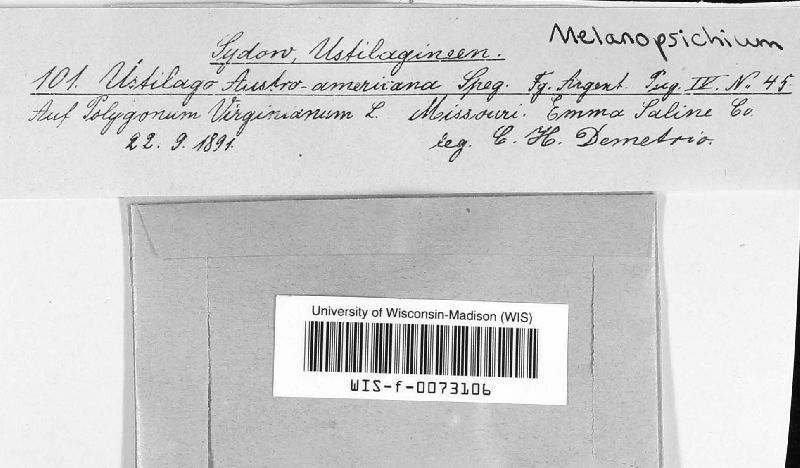 Melanopsichium
Sydow, Ustilagineen.
101. Ustilago Austro-americana Speg. Fg. Argent. Pug. IV. No. 45
Auf Polygonum Virginianum L. Missouri. Emma Saline Co.
22. 9. 1891. leg. C. H. Demetrio.
University of Wisconsin-Madison (WIS)
WIS-f-0073106